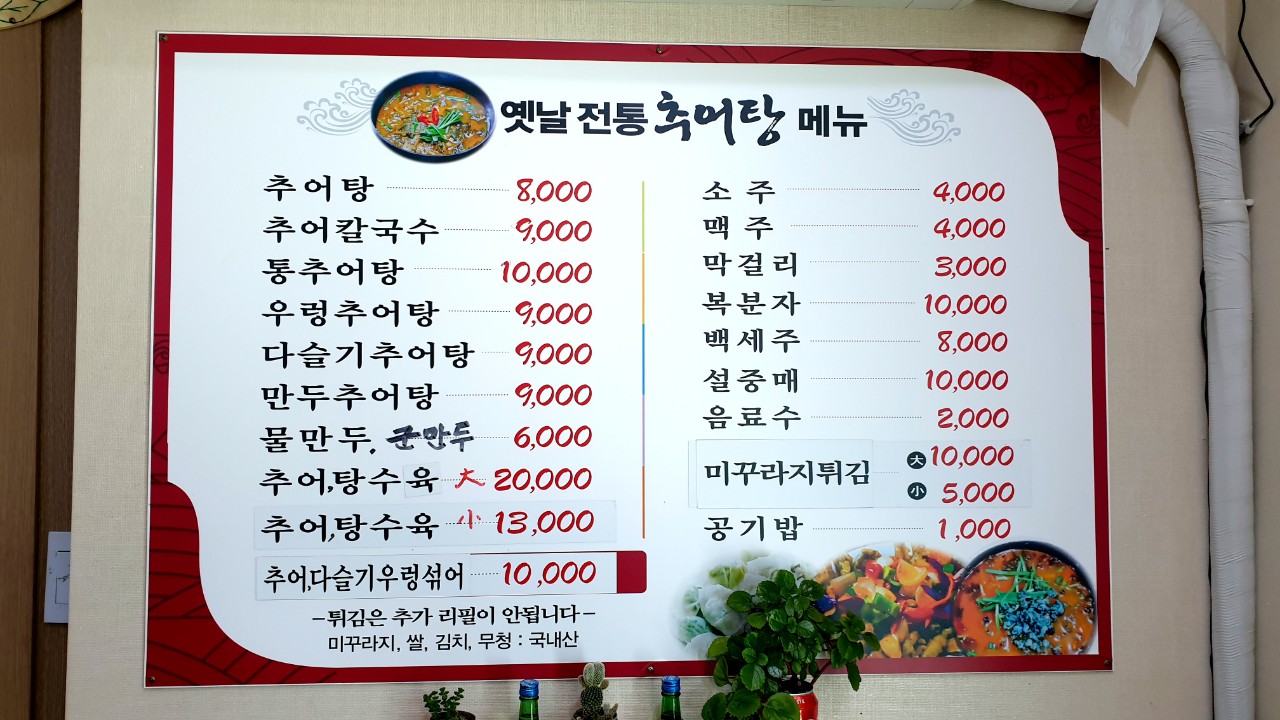 옛날 전통 추어탕 메뉴
추어탕 8,000
추어칼국수 9,000
통추어탕 10,000
우렁추어탕 9,000
다슬기추어탕 9,000
만두추어탕 9,000
물만두, 군만두 6,000
추어,탕수육 大 20,000
추어,탕수육 小 13,000
추어,다슬기우렁섞어 10,000
-튀김은 추가 리필이 안됩니다-
미꾸라지, 쌀, 김치, 무청 : 국내산
소주 4,000
맥주 4,000
막걸리 3,000
복분자 10,000
백세주 8,000
설중매 10,000
음료수 2,000
미꾸라지튀김 大 10,000
小 5,000
공기밥 1,000